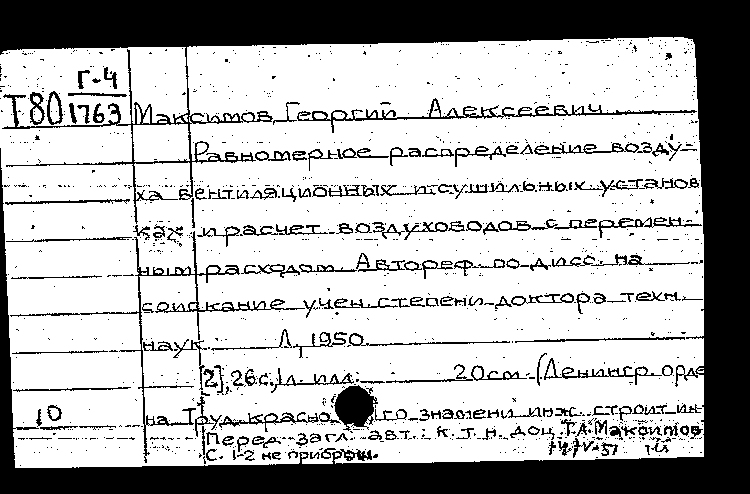 Г-4
Т80 1763 Максимов, Георгий Алексеевич
Равномерное распределение возду-
ха в вентиляционных и сушильных установ
ках и расчет воздуховодов с перемен-
ным расходом. Автореф. по дисс. на
соискание учен. степени доктора техн.
наук. Л., 1950.
[2], 26 с., 1 л. илл. 20 см. (Ленингр. орде
10 на Труд. красно го знамени инж. строит ин-
Перед загл. авт.: к. т. н. доц. Г.А. Максимов
С. 1-2 не приброш.